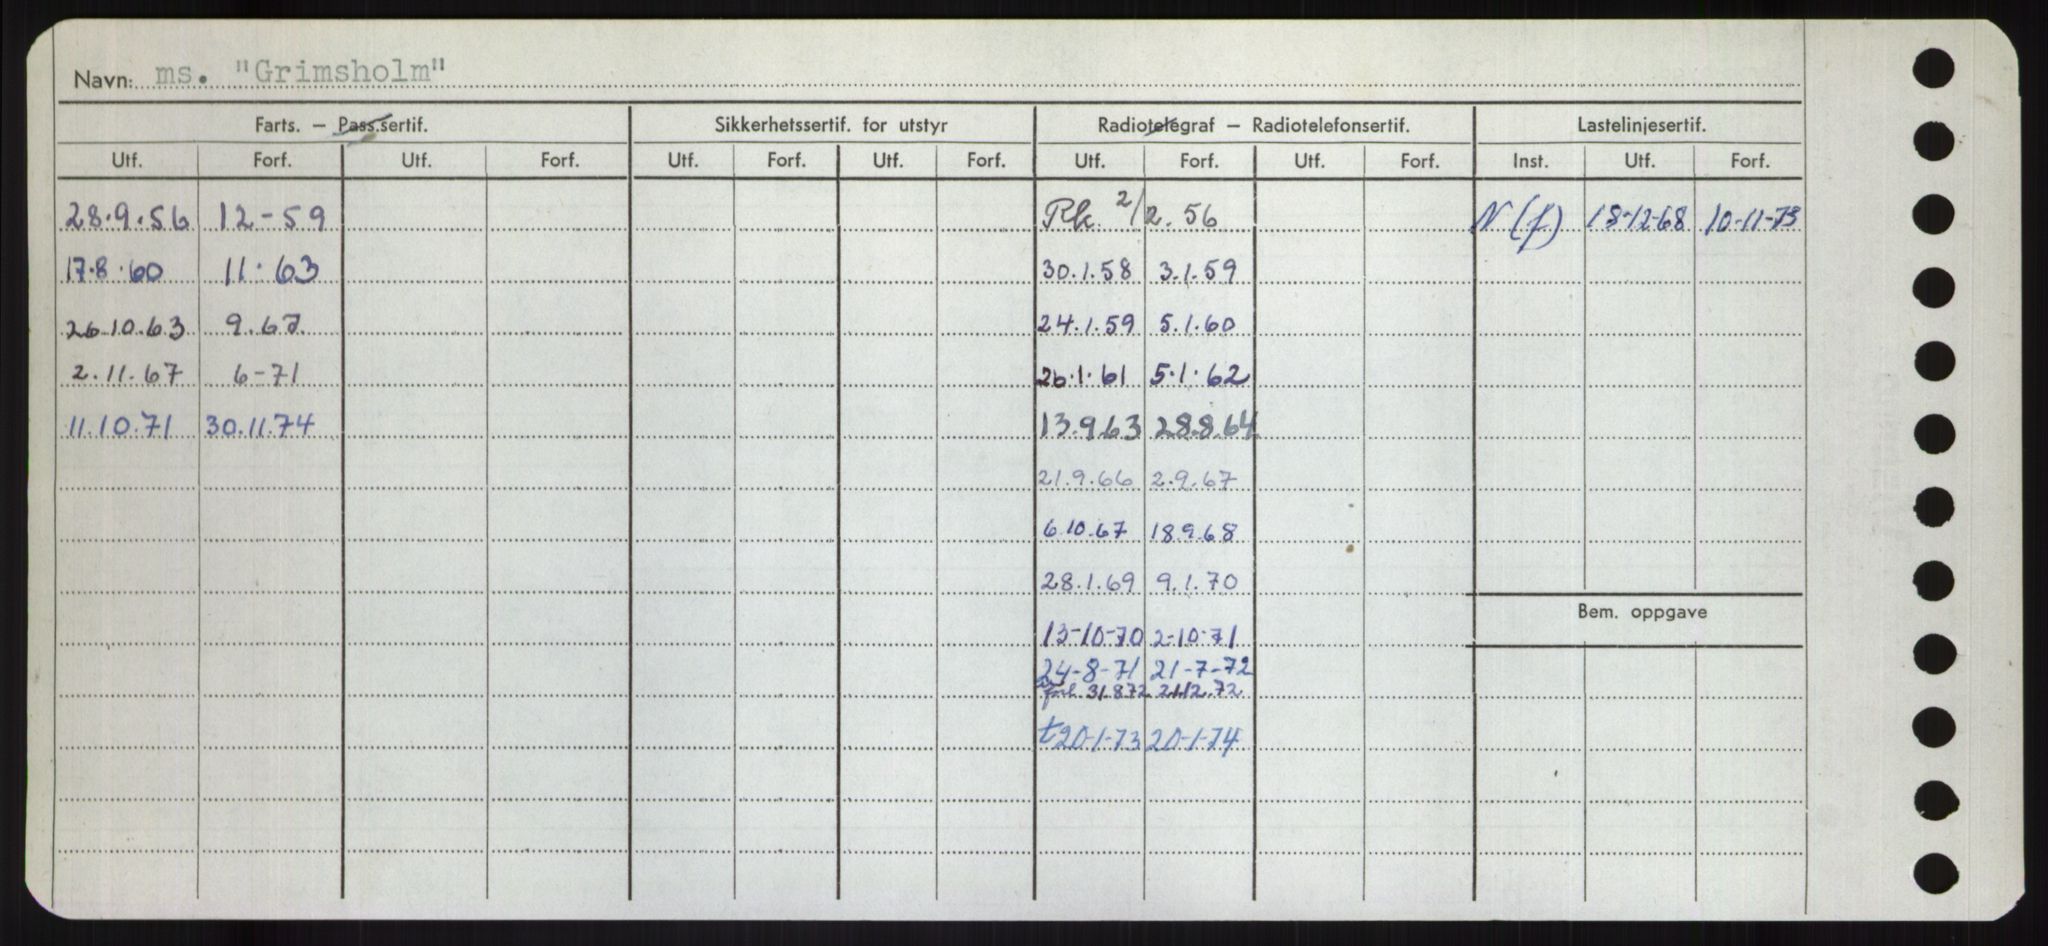 Navn: ms. "Grimsholm"
Farts. – Pass.sertif. Sikkerhetssertif. for utstyr Radiotelegraf – Radiotelefonsertif. Lastelinjesertif.
Utf. Forf. Utf. Forf. Utf. Forf. Utf. Forf. Utf. Forf. Utf. Forf. Inst. Utf. Forf.
28.9.56 12-59 Pk. 2/2.56 N (f) 18-12-68 10-11-73
17.8.60 11.63 30.1.58 3.1.59
26.10.63 9.67 24.1.59 5.1.60
2.11.67 6-71 26.1.61 5.1.62
11.10.71 30.11.74 13.9.63 28.8.64
21.9.66 2.9.67
6.10.67 18.9.68
28.1.69 9.1.70
Bem. oppgave
13-10-70 2-10-71
24-8-71 21-7-72
forl 31.872 21.12.72
t20-1-73 20-1-74